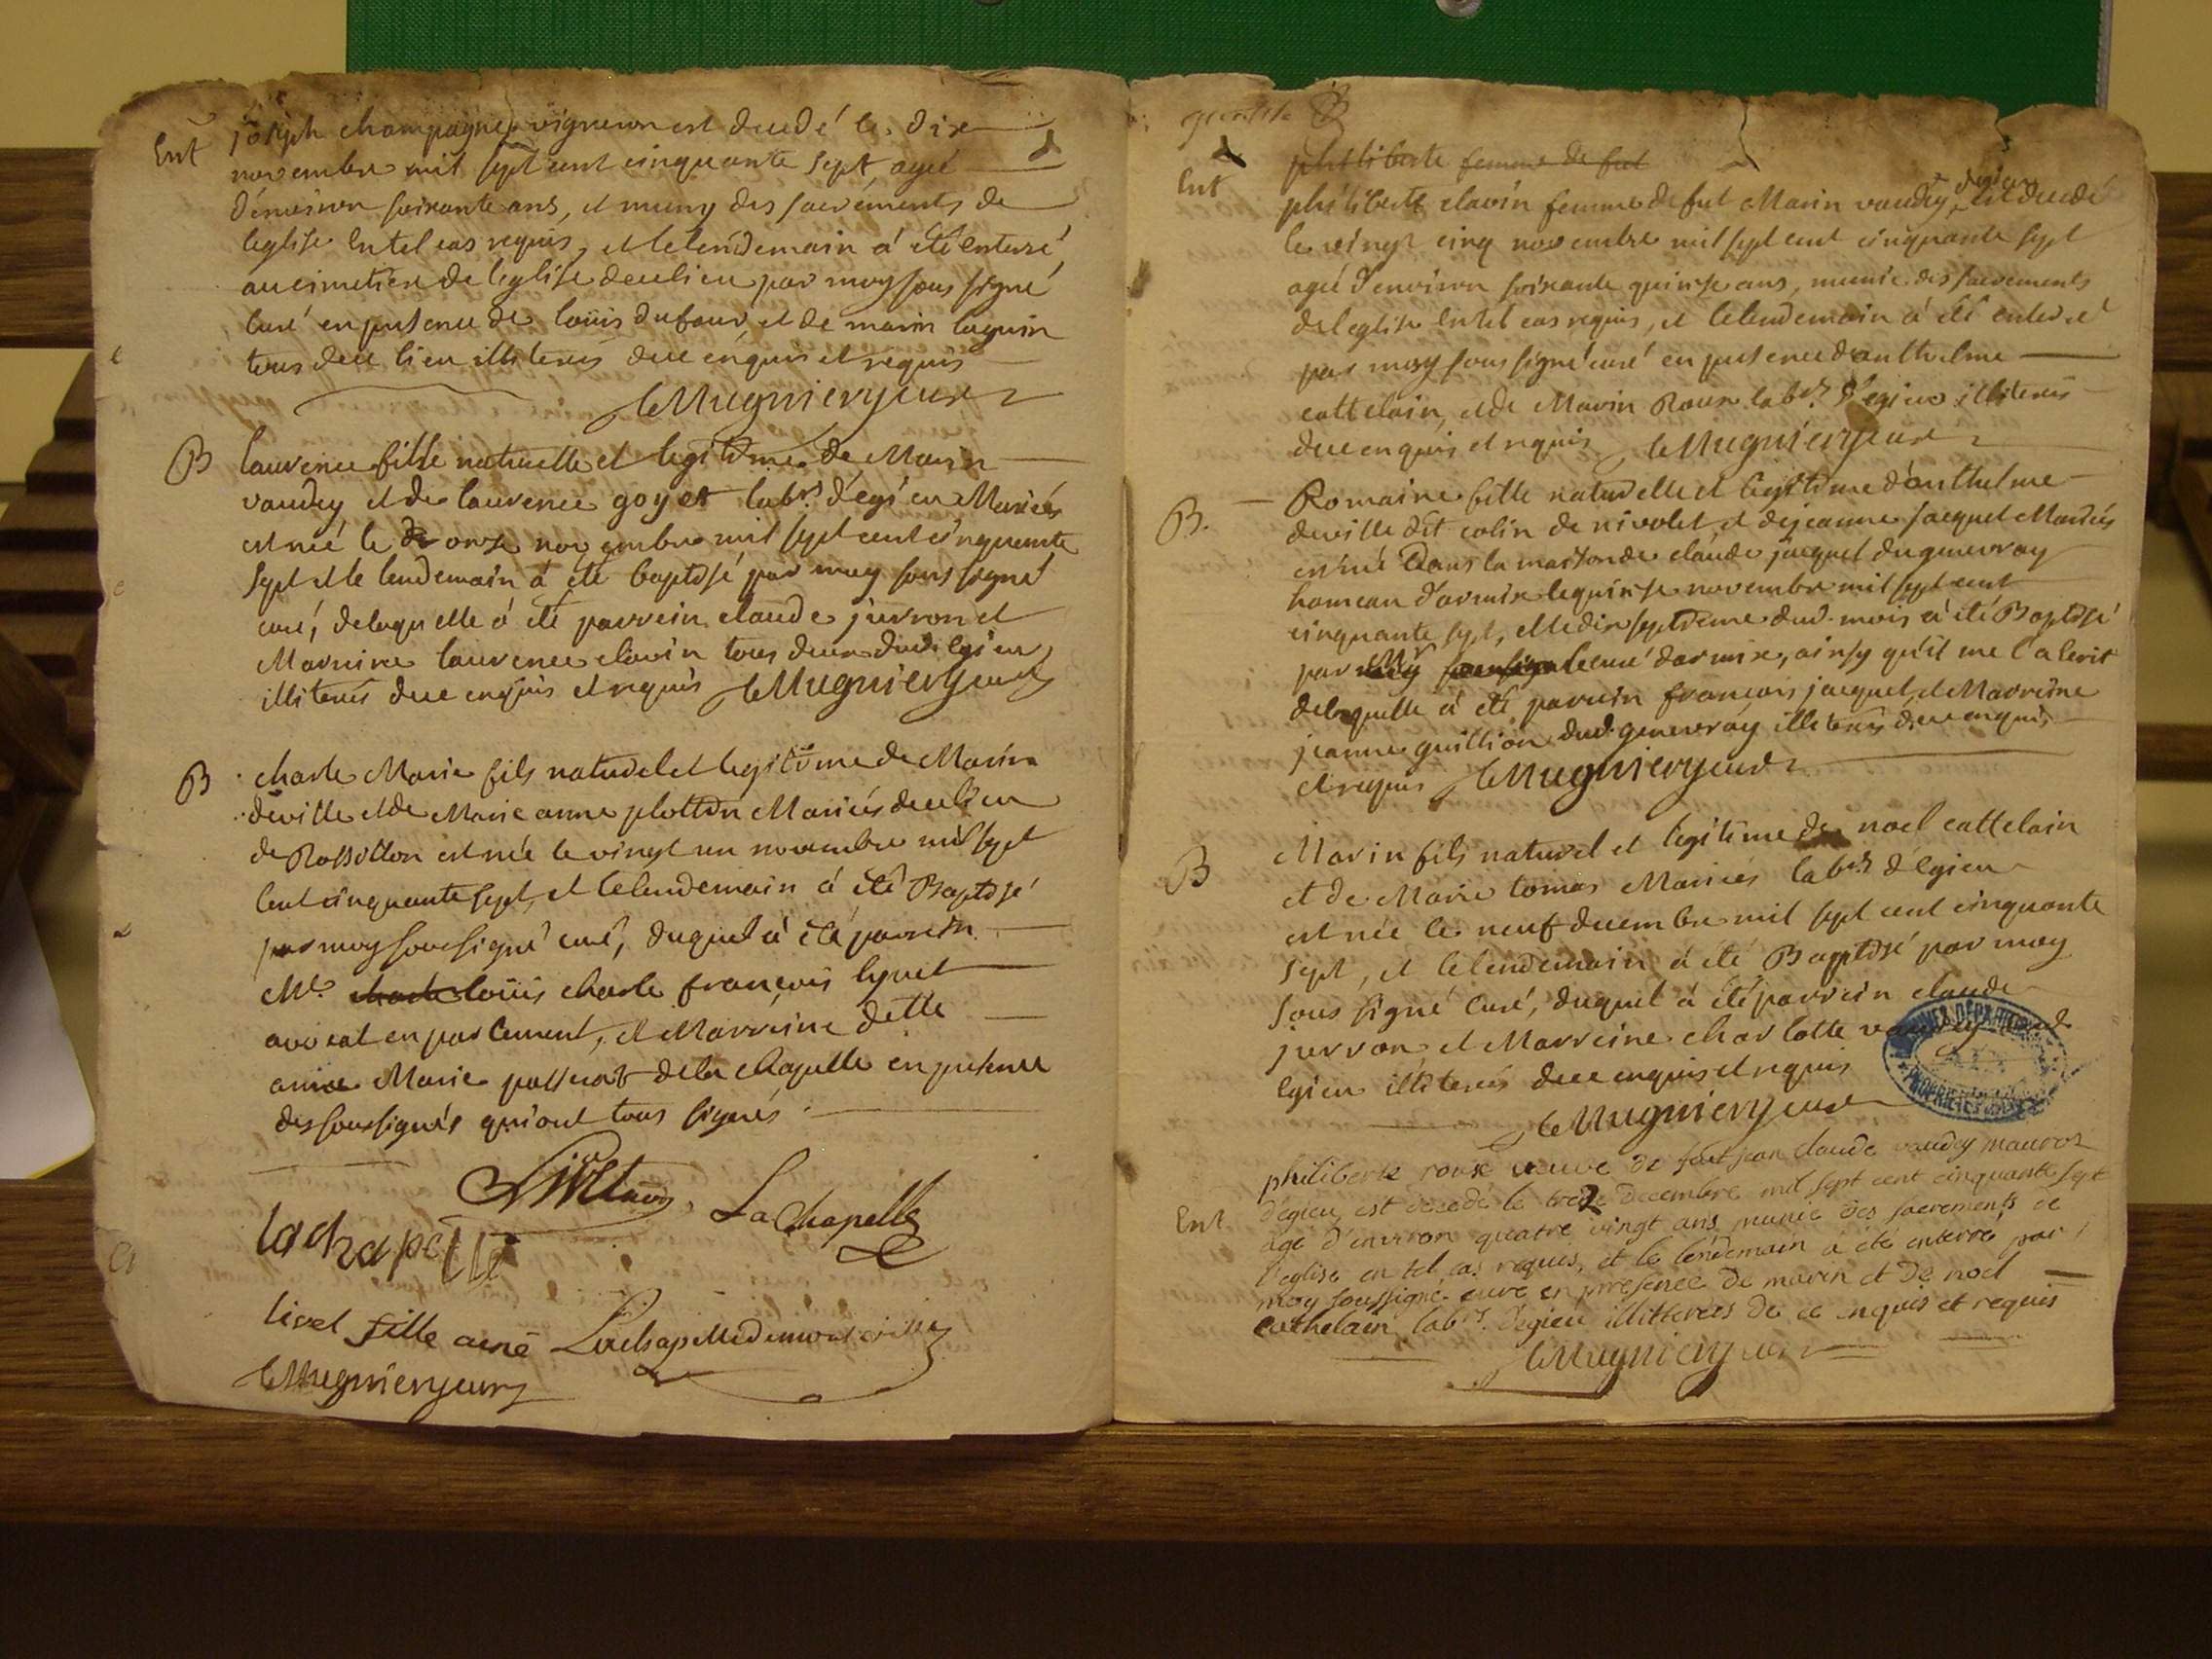 Ent
joseph champagne vigneron est decedé le dix
novembre mil sept cent cinquante sept, agé
d'environ soixante ans, et muny des sacrements de
l'eglise en tel cas requis, et le lendemain à été enterré
au cimetiere de l'eglise de ce lieu par moy sous signé
curé en presence de loüis dufour, et de marin
tous de ce lieu illiterés de ce enquis et requis
leMugnieryeuré
B
laurence fille naturelle et legitime de Marin
vaudey et de laurence goyet labrs d'egieu Mariés
est née le onze novembre mil sept cent cinquante
sept et le lendemain à été baptisé par moy sous signé
curé, de laquelle à été parrein claude juvron et
Marreine laurence clavin tous deux dud. egieu
illiterés de ce enquis et requis leMugnier curé
B
charle Marie fils naturel et legitime de Marin
deville et de Marie anne plottin Mariés de ce lieu
de Rossillon est née le vingt un novembre mil sept
cent cinquante sept, et le lendemain à été Baptisé
par moy sous signé curé, duquel à été parrein
Mre charle loüis charle françois lyvet
avocat en parlement, et Marreine delle
anne Marie passerat de la chapelle en presence
des soussignés qui ont tous signés
La Chapelle
lachapelle
livet fille ainé
Lachapelle
leMugnier curé
Ent
philiberte femme de fut
philiberte clavin femme de fut Marin vaudey, d'egieu est decedé
le vingt cinq novembre mil sept cent cinquante sept
agé d'environ soixante quinse ans, munie des sacrements
de l'eglise en tel cas requis, et le lendemain à été enterré
par moy sous signé curé en presence d'anthelme
cattelain, et de Marin Roux labrs d'egieu illiterés
de ce enquis et requis leMugnier curé
B.
Romaine fille naturelle et legitime d'anthelme
deville dit colin de nivolet et de jeanne jacquet Mariés
est né Dans la maison de claude jacquet du genevray
hameau d'armix le quinse novembre mil sept cent
cinquante sept, et le dix septieme dud. mois à été Baptisé
par le curé d'armix, ainsy qu'il me l'a écrit
de laquelle à été parrein françois jacquet, et Marreine
jeanne guillion dud. genevray illiterés de ce enquis
et requis leMugnier curé
B
Marin fils naturel et legitime de noel cattelain
et de Marie tomas Mariés labrs d'egieu
est née le neuf decembre mil sept cent cinquante
sept, et le lendemain à été Baptisé par moy
sous signé curé, duquel à été parrein claude
juvron, et Marreine charlotte vaudey
egieu illiterés de ce enquis et requis
leMugnier curé
Ent
philiberte roux veuve de fut jean claude vaudey
d'egieu, est decedé le treize decembre mil sept cent cinquante sept
agé d'environ quatre vingt ans, munie des sacrements de
l'eglise en tel cas requis, et le lendemain a été enterré par
moy soussigné curé en presence de marin et de noel
cathelain labrs d'egieu illitterés de ce enquis et requis
leMugnier curé